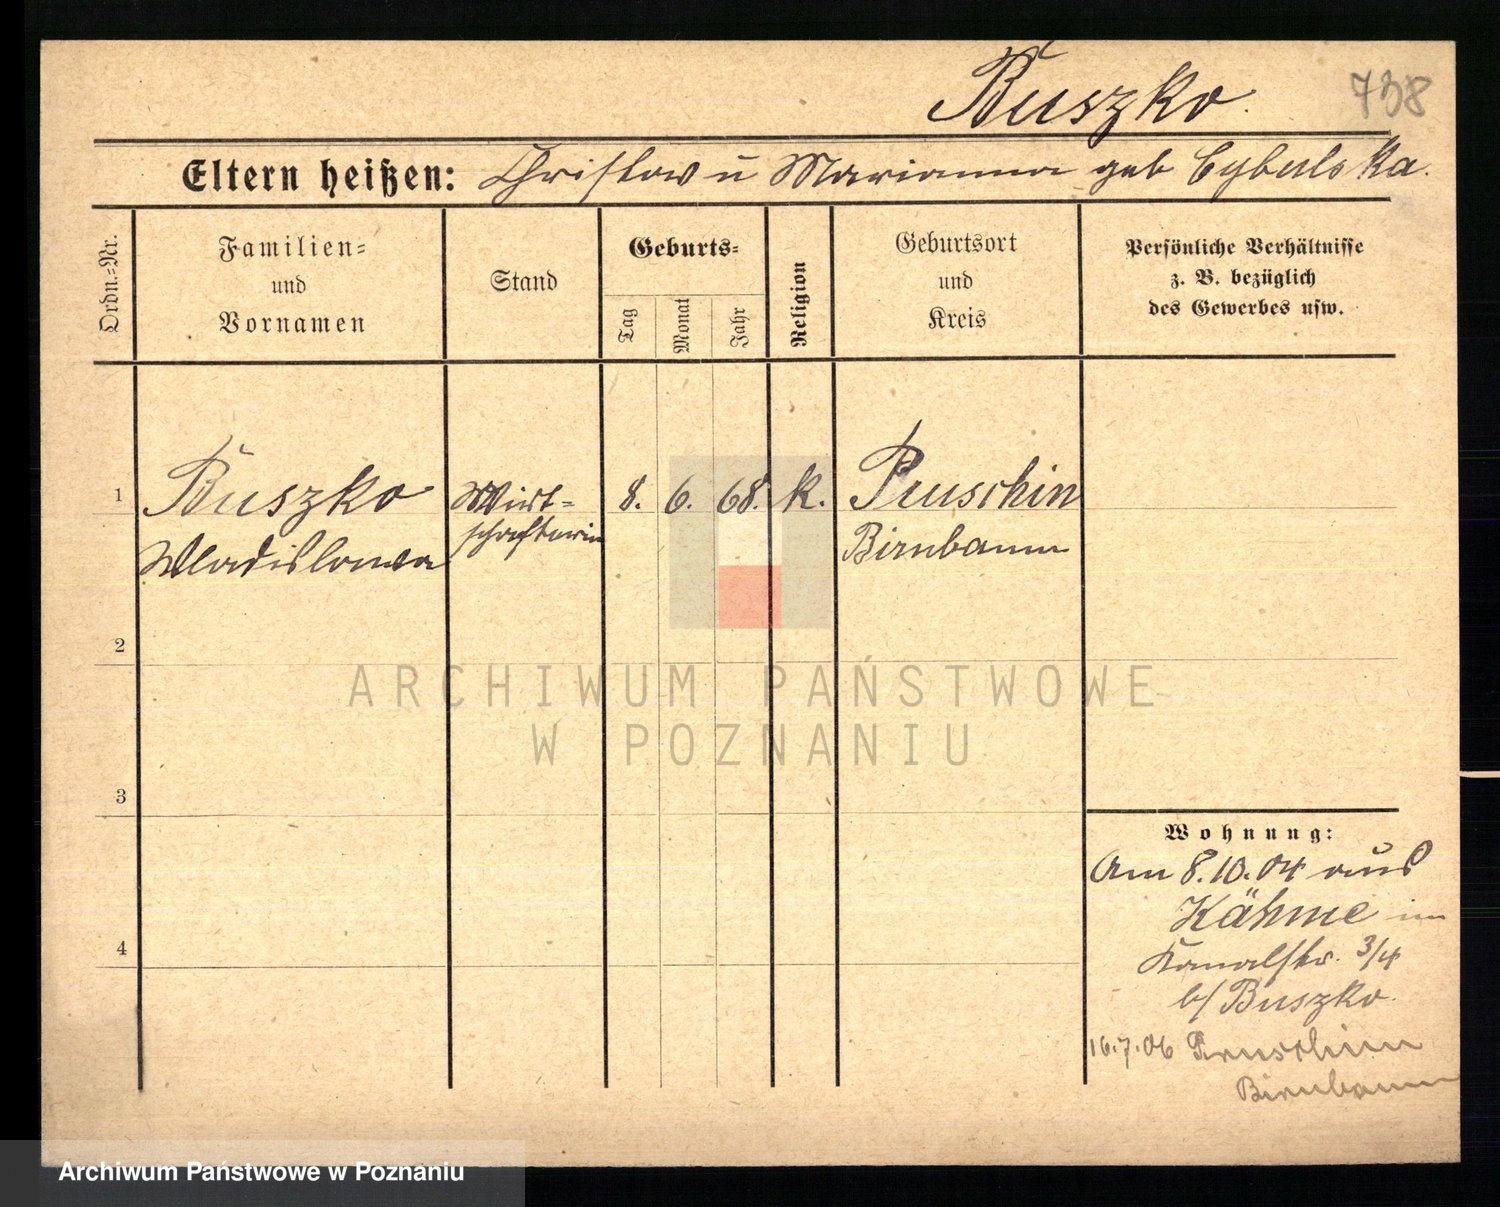 Buszko.
738
Eltern heißen: Christow u Marianna geb Cybulska.
Ordn.-Nr.
Familien-
und
Vornamen
Stand
Geburts-
Tag
Monat
Jahr
Religion
Geburtsort
und
Kreis
Persönliche Verhältnisse
z. B. bezüglich
des Gewerbes usw.
1
Buszko
Wladislawa
Wirt-
schafterin
8. 6. 68. k.
Pruschin
Birnbaum
2
3
4
Wohnung:
Am 8.10.04 aus
Kähme im
Kanalstr. 3/4
b/ Buszko.
16.7.06 Pruschim
Birnbaum
ARCHIWUM PAŃSTWOWE
W POZNANIU
Archiwum Państwowe w Poznaniu